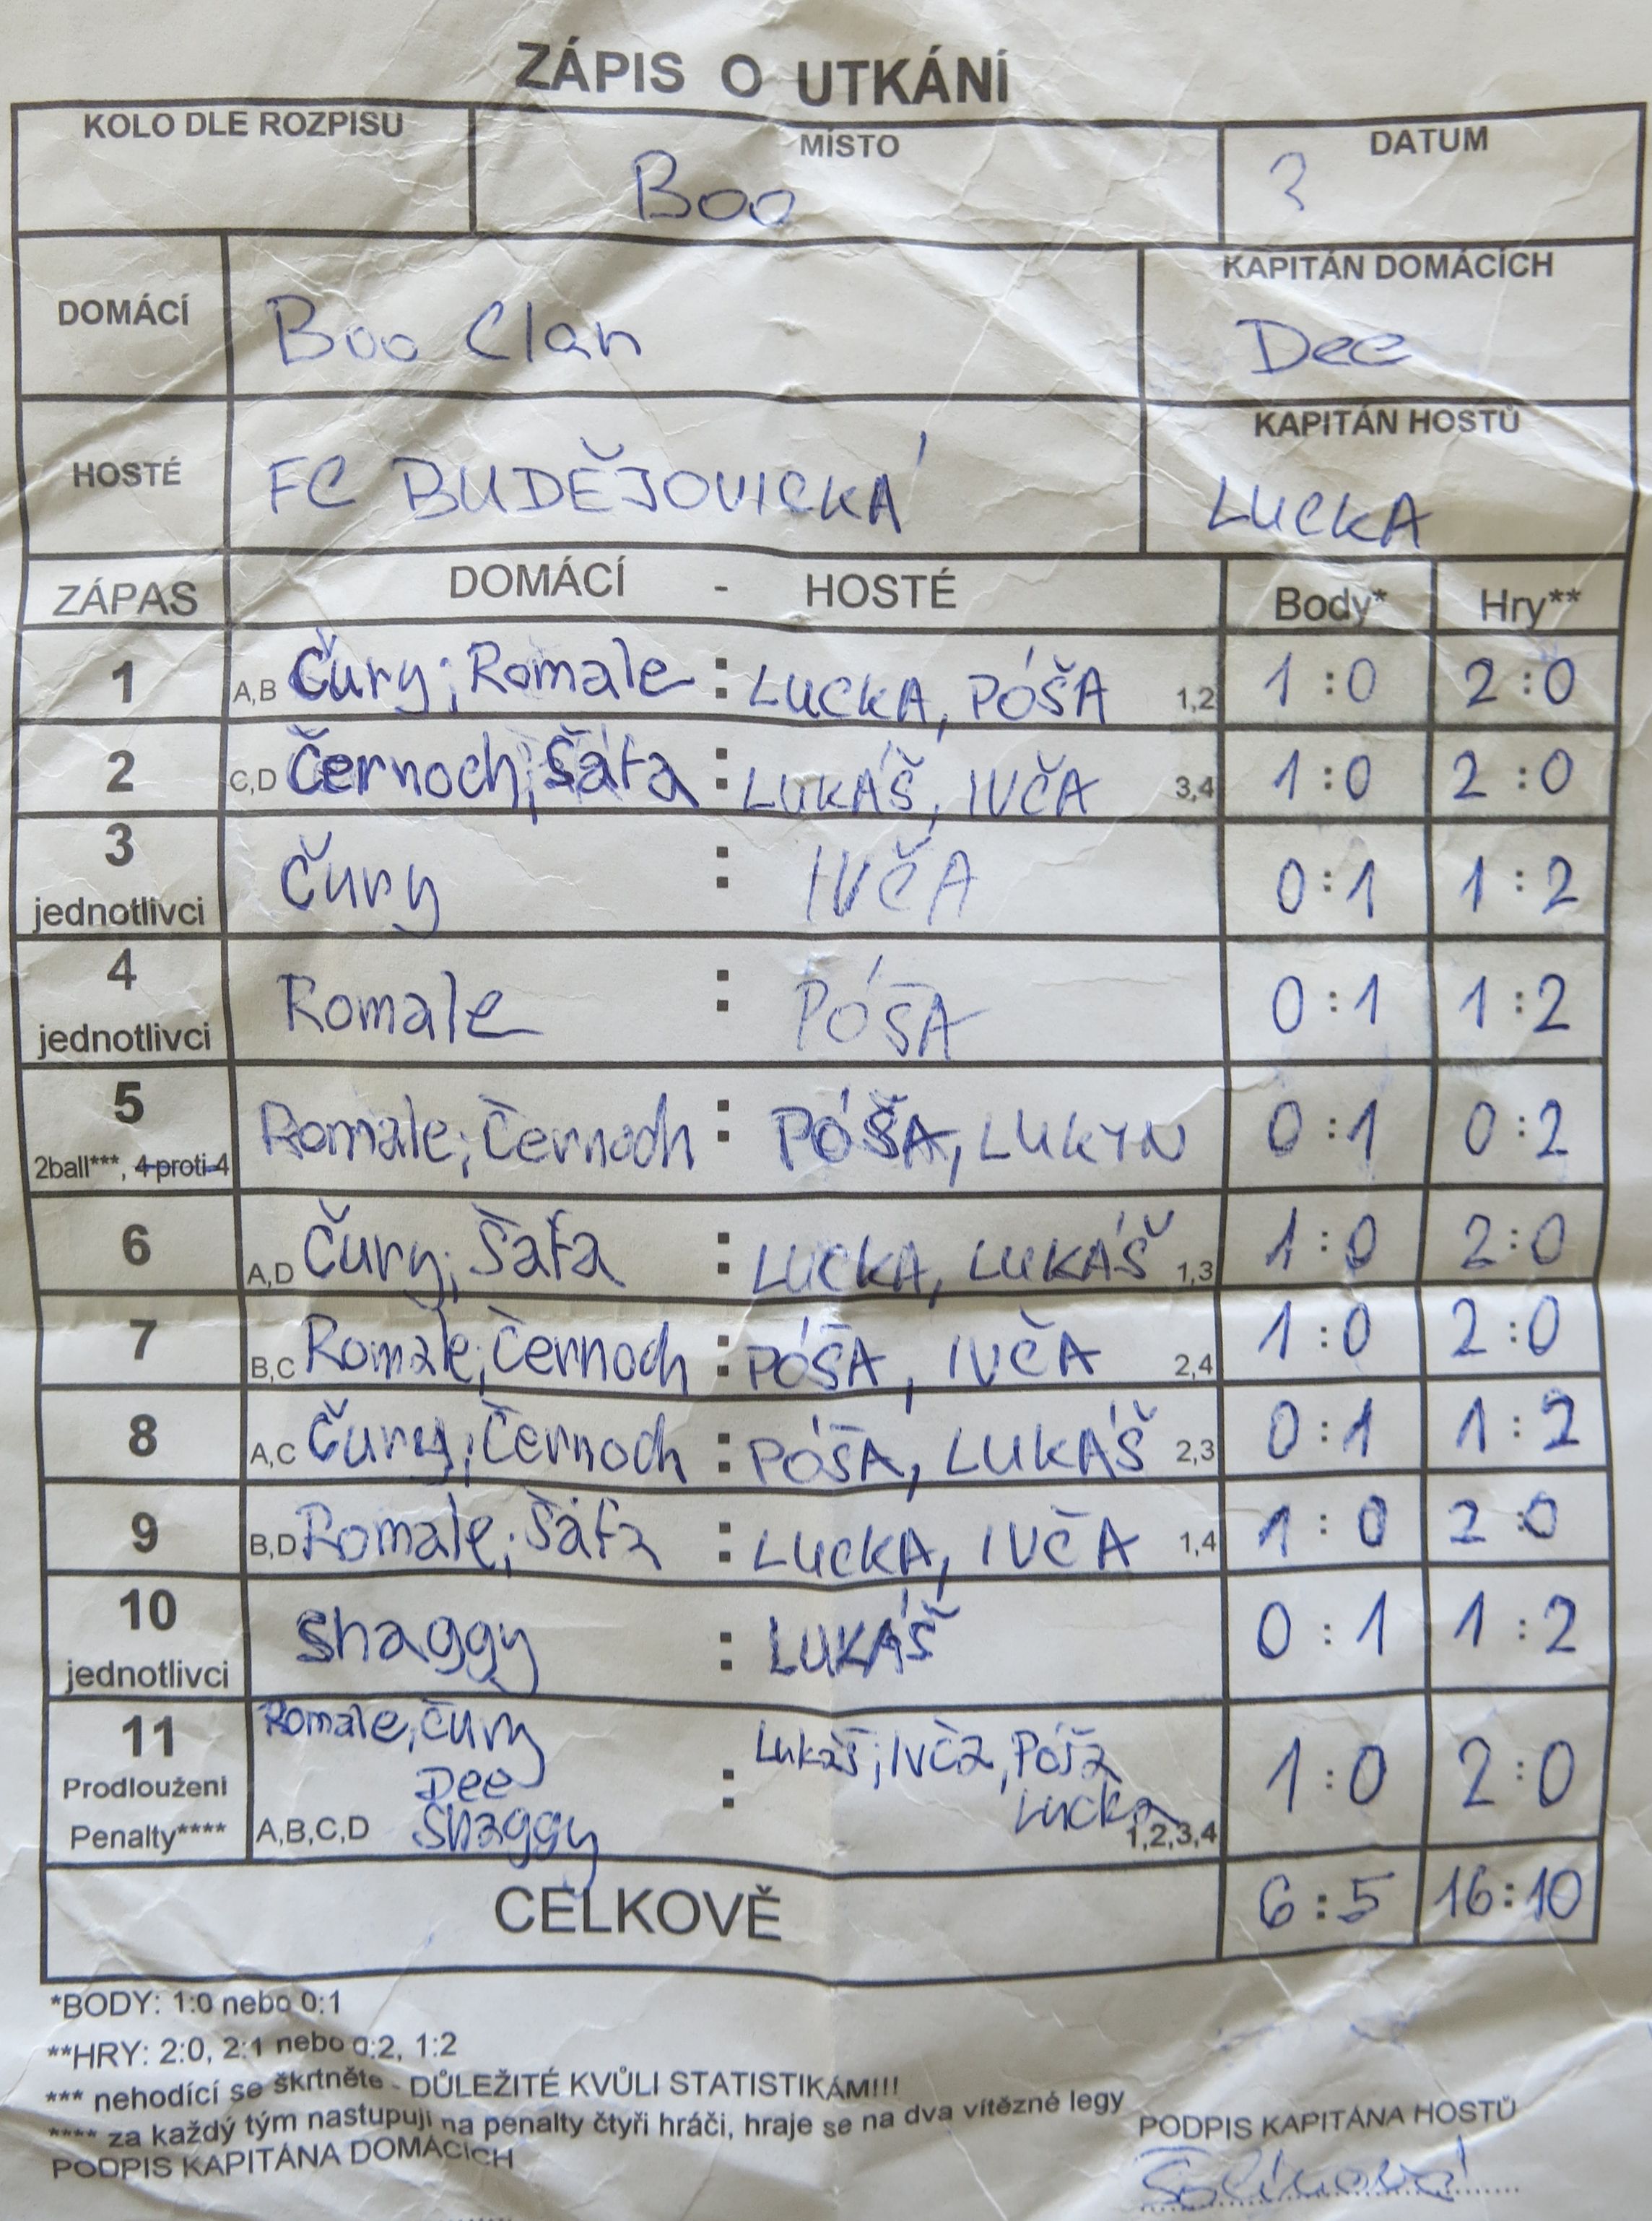 ZÁPIS O UTKÁNÍ
KOLO DLE ROZPISU MÍSTO DATUM
Boo ?
DOMÁCÍ Boo Clan KAPITÁN DOMÁCÍCH
Dee
HOSTÉ FC BUDĚJOVICKÁ KAPITÁN HOSTŮ
LUCKA
ZÁPAS DOMÁCÍ - HOSTÉ Body* Hry**
1 A,B Čury; Romale : LUCKA, PÓŠA 1,2 1:0 2:0
2 C,D Černoch; Šáťa : LUKÁŠ, IVČA 3,4 1:0 2:0
3 jednotlivci Čury : IVČA 0:1 1:2
4 jednotlivci Romale : PÓŠA 0:1 1:2
5 Romale; Černoch : PÓŠA, LUKYN 0:1 0:2
2ball***, 4 proti 4
6 A,D Čury; Šáťa : LUCKA, LUKÁŠ 1,3 1:0 2:0
7 B,C Romale; Černoch : PÓŠA, IVČA 2,4 1:0 2:0
8 A,C Čury; Černoch : PÓŠA, LUKÁŠ 2,3 0:1 1:2
9 B,D Romale; Šáťa : LUCKA, IVČA 1,4 1:0 2:0
10 jednotlivci Shaggy : LUKÁŠ 0:1 1:2
11 Romale, Čury : Lukáš; Ivča, Póša 1:0 2:0
Prodloužení Dee Lucka
Penalty**** A,B,C,D Shaggy 1,2,3,4
CELKOVĚ 6:5 16:10
*BODY: 1:0 nebo 0:1
**HRY: 2:0, 2:1 nebo 0:2, 1:2
*** nehodící se škrtněte - DŮLEŽITÉ KVŮLI STATISTIKÁM!!!
**** za každý tým nastupují na penalty čtyři hráči, hraje se na dva vítězné legy
PODPIS KAPITÁNA DOMÁCÍCH PODPIS KAPITÁNA HOSTŮ